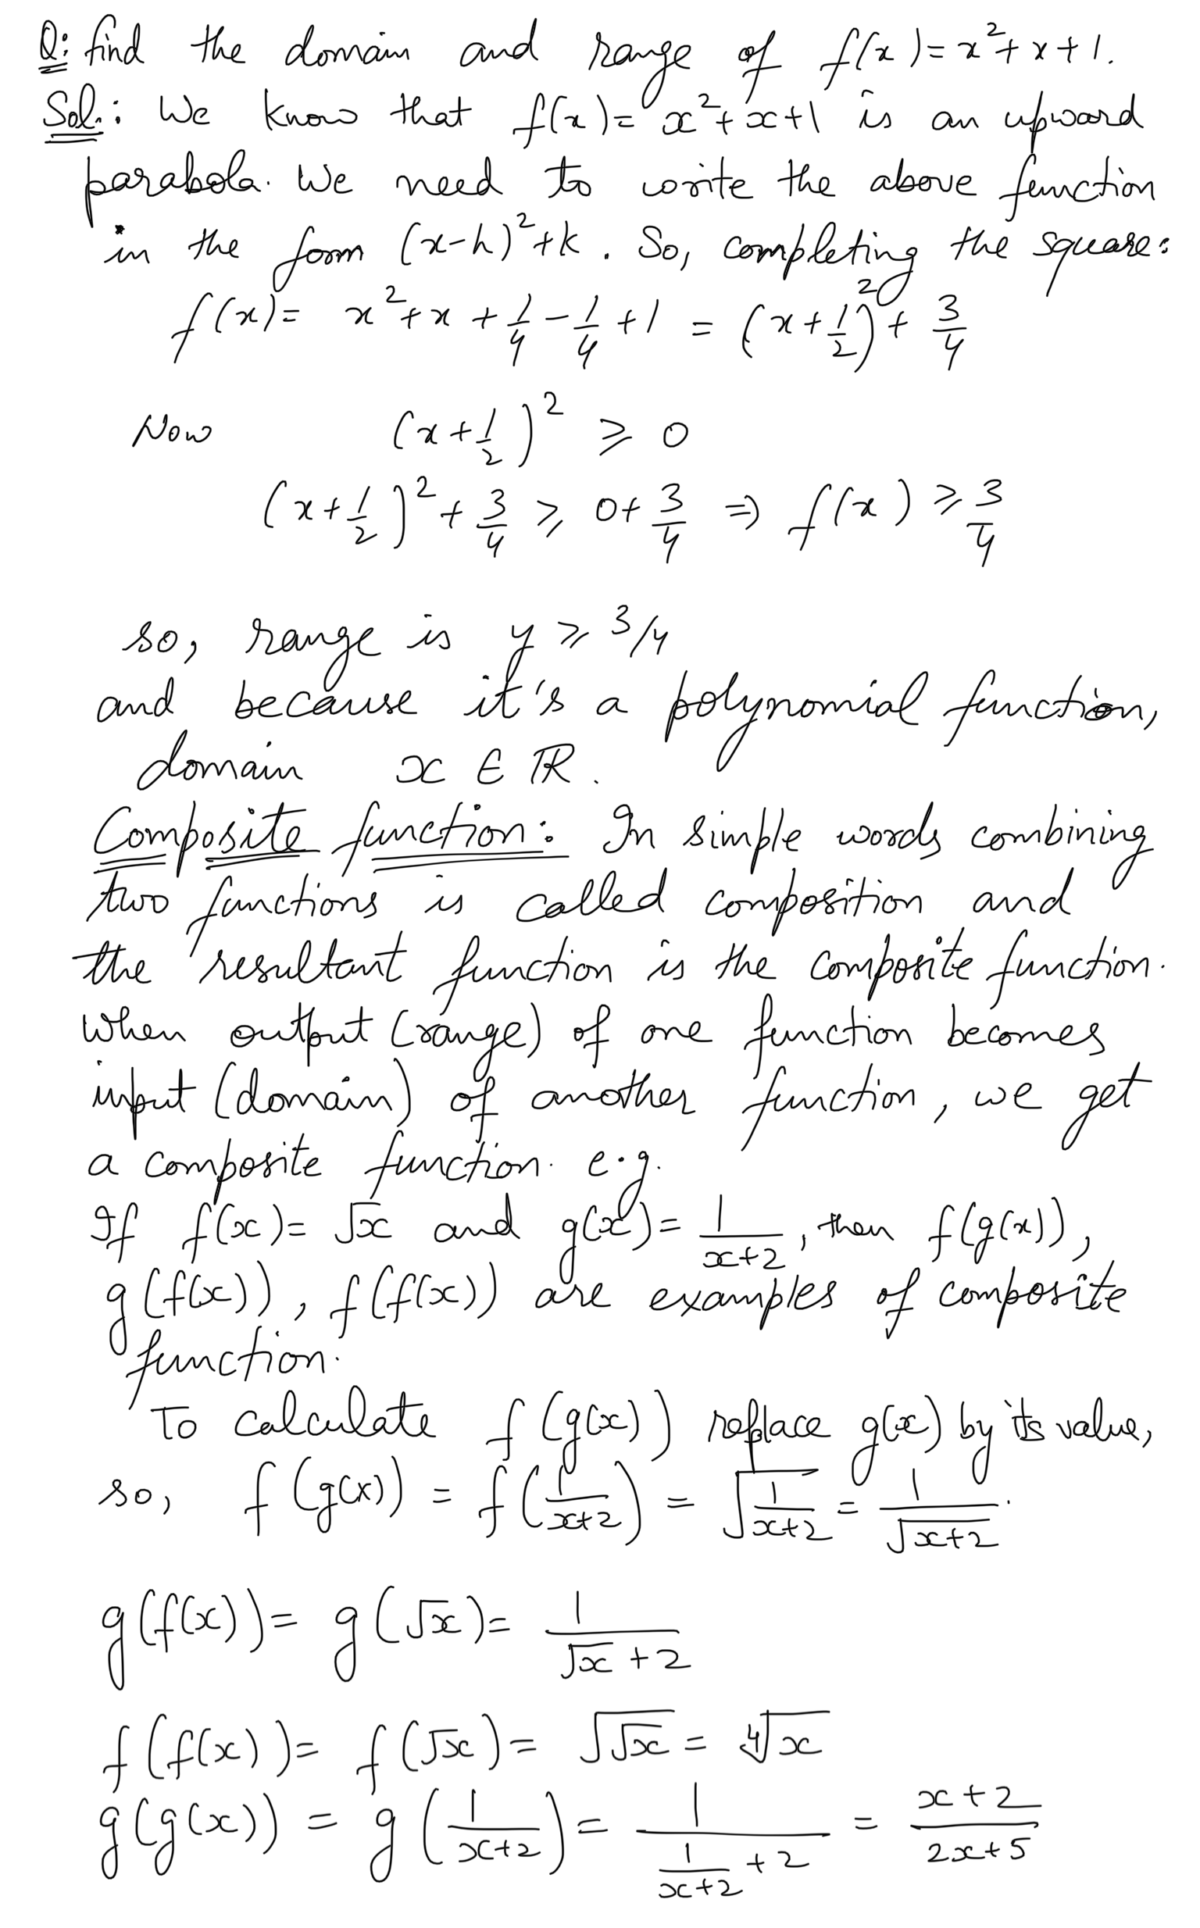 Q: find the domain and range of f(x)=x²+x+1.
Sol.: We know that f(x)=x²+x+1 is an upward
parabola. We need to write the above function
in the form (x-h)²+k. So, completing the square:
f(x)= x²+x+1/4-1/4+1 = (x+1/2)²+3/4
Now (x+1/2)² ⩾ 0
(x+1/2)²+3/4 ⩾ 0+3/4 ⇒ f(x) ⩾ 3/4
so, range is y ⩾ 3/4
and because it's a polynomial function,
domain x ∈ ℝ.
Composite function: In simple words combining
two functions is called composition and
the resultant function is the composite function.
When output (range) of one function becomes
input (domain) of another function, we get
a composite function. e.g.
If f(x)= √x and g(x)= 1/(x+2), then f(g(x)),
g(f(x)), f(f(x)) are examples of composite
function.
To calculate f(g(x)) replace g(x) by its value,
so, f(g(x)) = f(1/(x+2)) = √(1/(x+2)) = 1/√(x+2).
g(f(x))= g(√x)= 1/(√x+2)
f(f(x))= f(√x)= √√x = ∜x
g(g(x)) = g(1/(x+2))= 1/(1/(x+2)+2) = (x+2)/(2x+5)